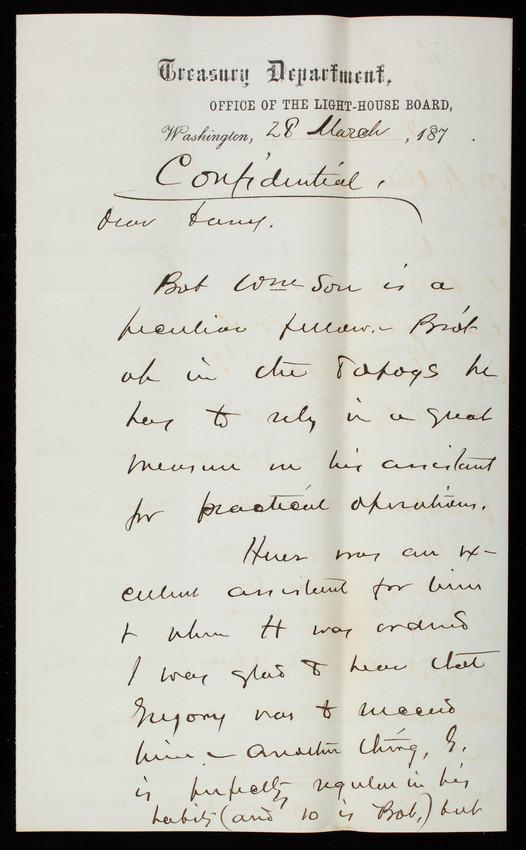 Treasury Department,
OFFICE OF THE LIGHT-HOUSE BOARD,
Washington, 28 March, 187 .
Confidential.
Dear
Bob Wmson is a
peculiar fellow. - Bro't
up in the Topogs he
has to rely in a great
measure on his assistant
for practical operations.
Heuer was an ex-
cellent assistant for him
& when H was ordered
I was glad to hear that
Gregory was to succeed
him. - Another thing, G.
is perfectly regular in his
habits (and so is Bob,) but